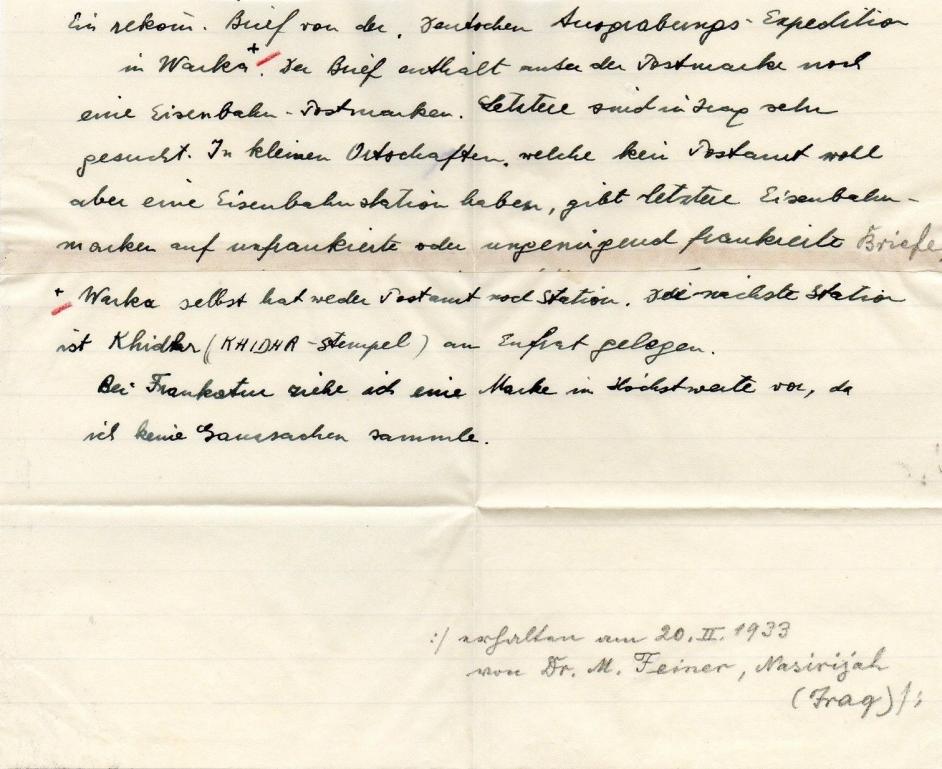 Ein rekom. Brief von der, Deutschen Ausgrabungs-Expedition
in Warka+. Der Brief enthält auser der Postmarke noch
eine Eisenbahn-Postmarken. Letztere sind in Iraq sehr
gesucht. In kleinen Ortschaften, welche kein Postamt wohl
aber eine Eisenbahnstation haben, gibt letztere Eisenbahn-
marken auf unfrankierte oder ungenügend frankierte Briefe
+ Warka selbst hat weder Postamt noch Station. Die nächste Station
ist Khidhr (KHIDHR-Stempel) am Eufrat gelegen.
Bei Frankatur ziehe ich eine Marke in Höchstwerte vor, da
ich keine Ganzsachen sammle.
:/ erhalten am 20. II. 1933
von Dr. M. Feiner, Nasirijah
(Iraq) /: